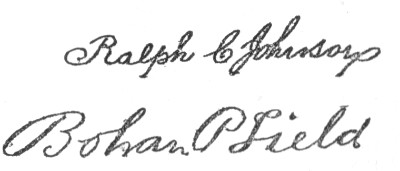 Ralph C Johnson
Bohan P Field